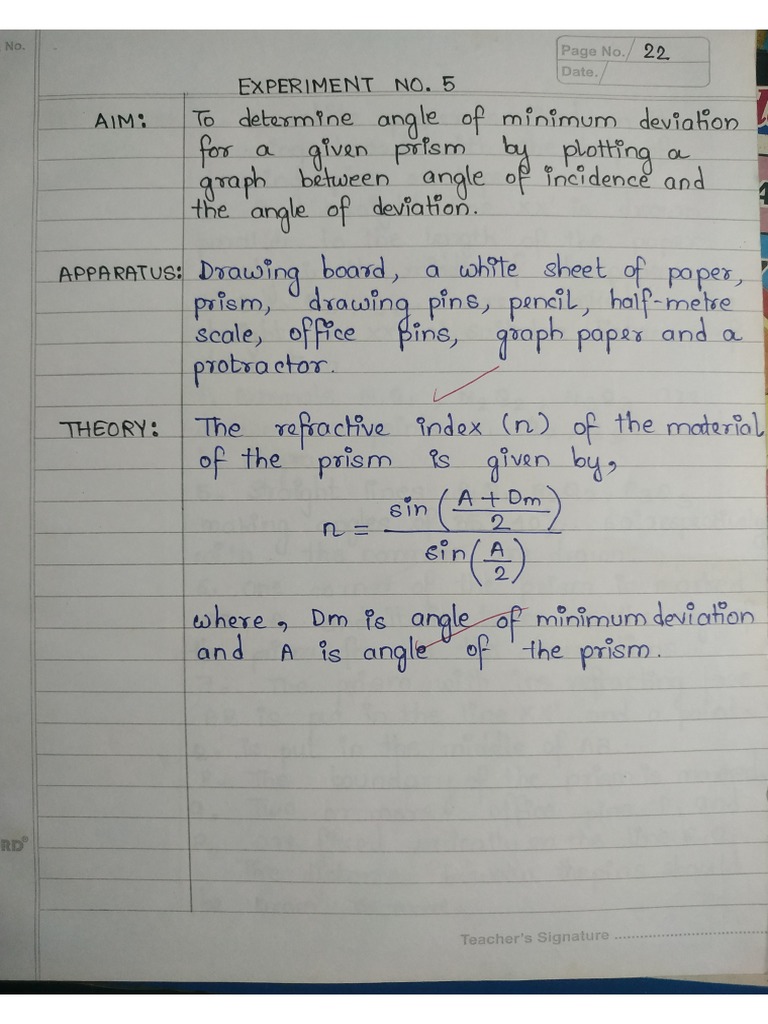 No.
Page No./ 22
Date./
EXPERIMENT NO. 5
AIM: To determine angle of minimum deviation
for a given prism by plotting a
graph between angle of incidence and
the angle of deviation.
APPARATUS: Drawing board, a white sheet of paper,
prism, drawing pins, pencil, half-metre
scale, office pins, graph paper and a
protractor.
THEORY: The refractive index (n) of the material
of the prism is given by,
n = sin((A + Dm)/2) / sin(A/2)
where, Dm is angle of minimum deviation
and A is angle of the prism.
RD
Teacher's Signature